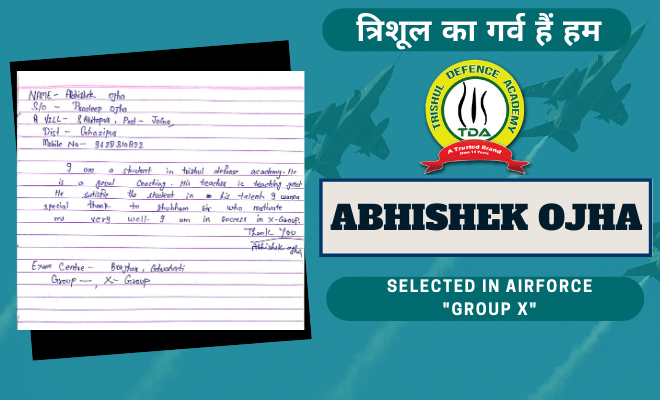 त्रिशूल का गर्व हैं हम
TRISHUL DEFENCE ACADEMY
TDA
A Trusted Brand
ABHISHEK OJHA
SELECTED IN AIRFORCE
"GROUP X"
NAME - Abhishek ojha
S/O - Pradeep ojha
VILL - Post -
Dist - Ghazipur
Mobile No -
I am a student in trishul defense academy. He
is a good coaching. His teacher is teaching good
He satisfie the student in his talent. I wanna
special thank to shubham sir who motivate
me very well. I am in success in X-Group.
Thank You
Abhishek ojha
Exam Centre -
Group - X-Group